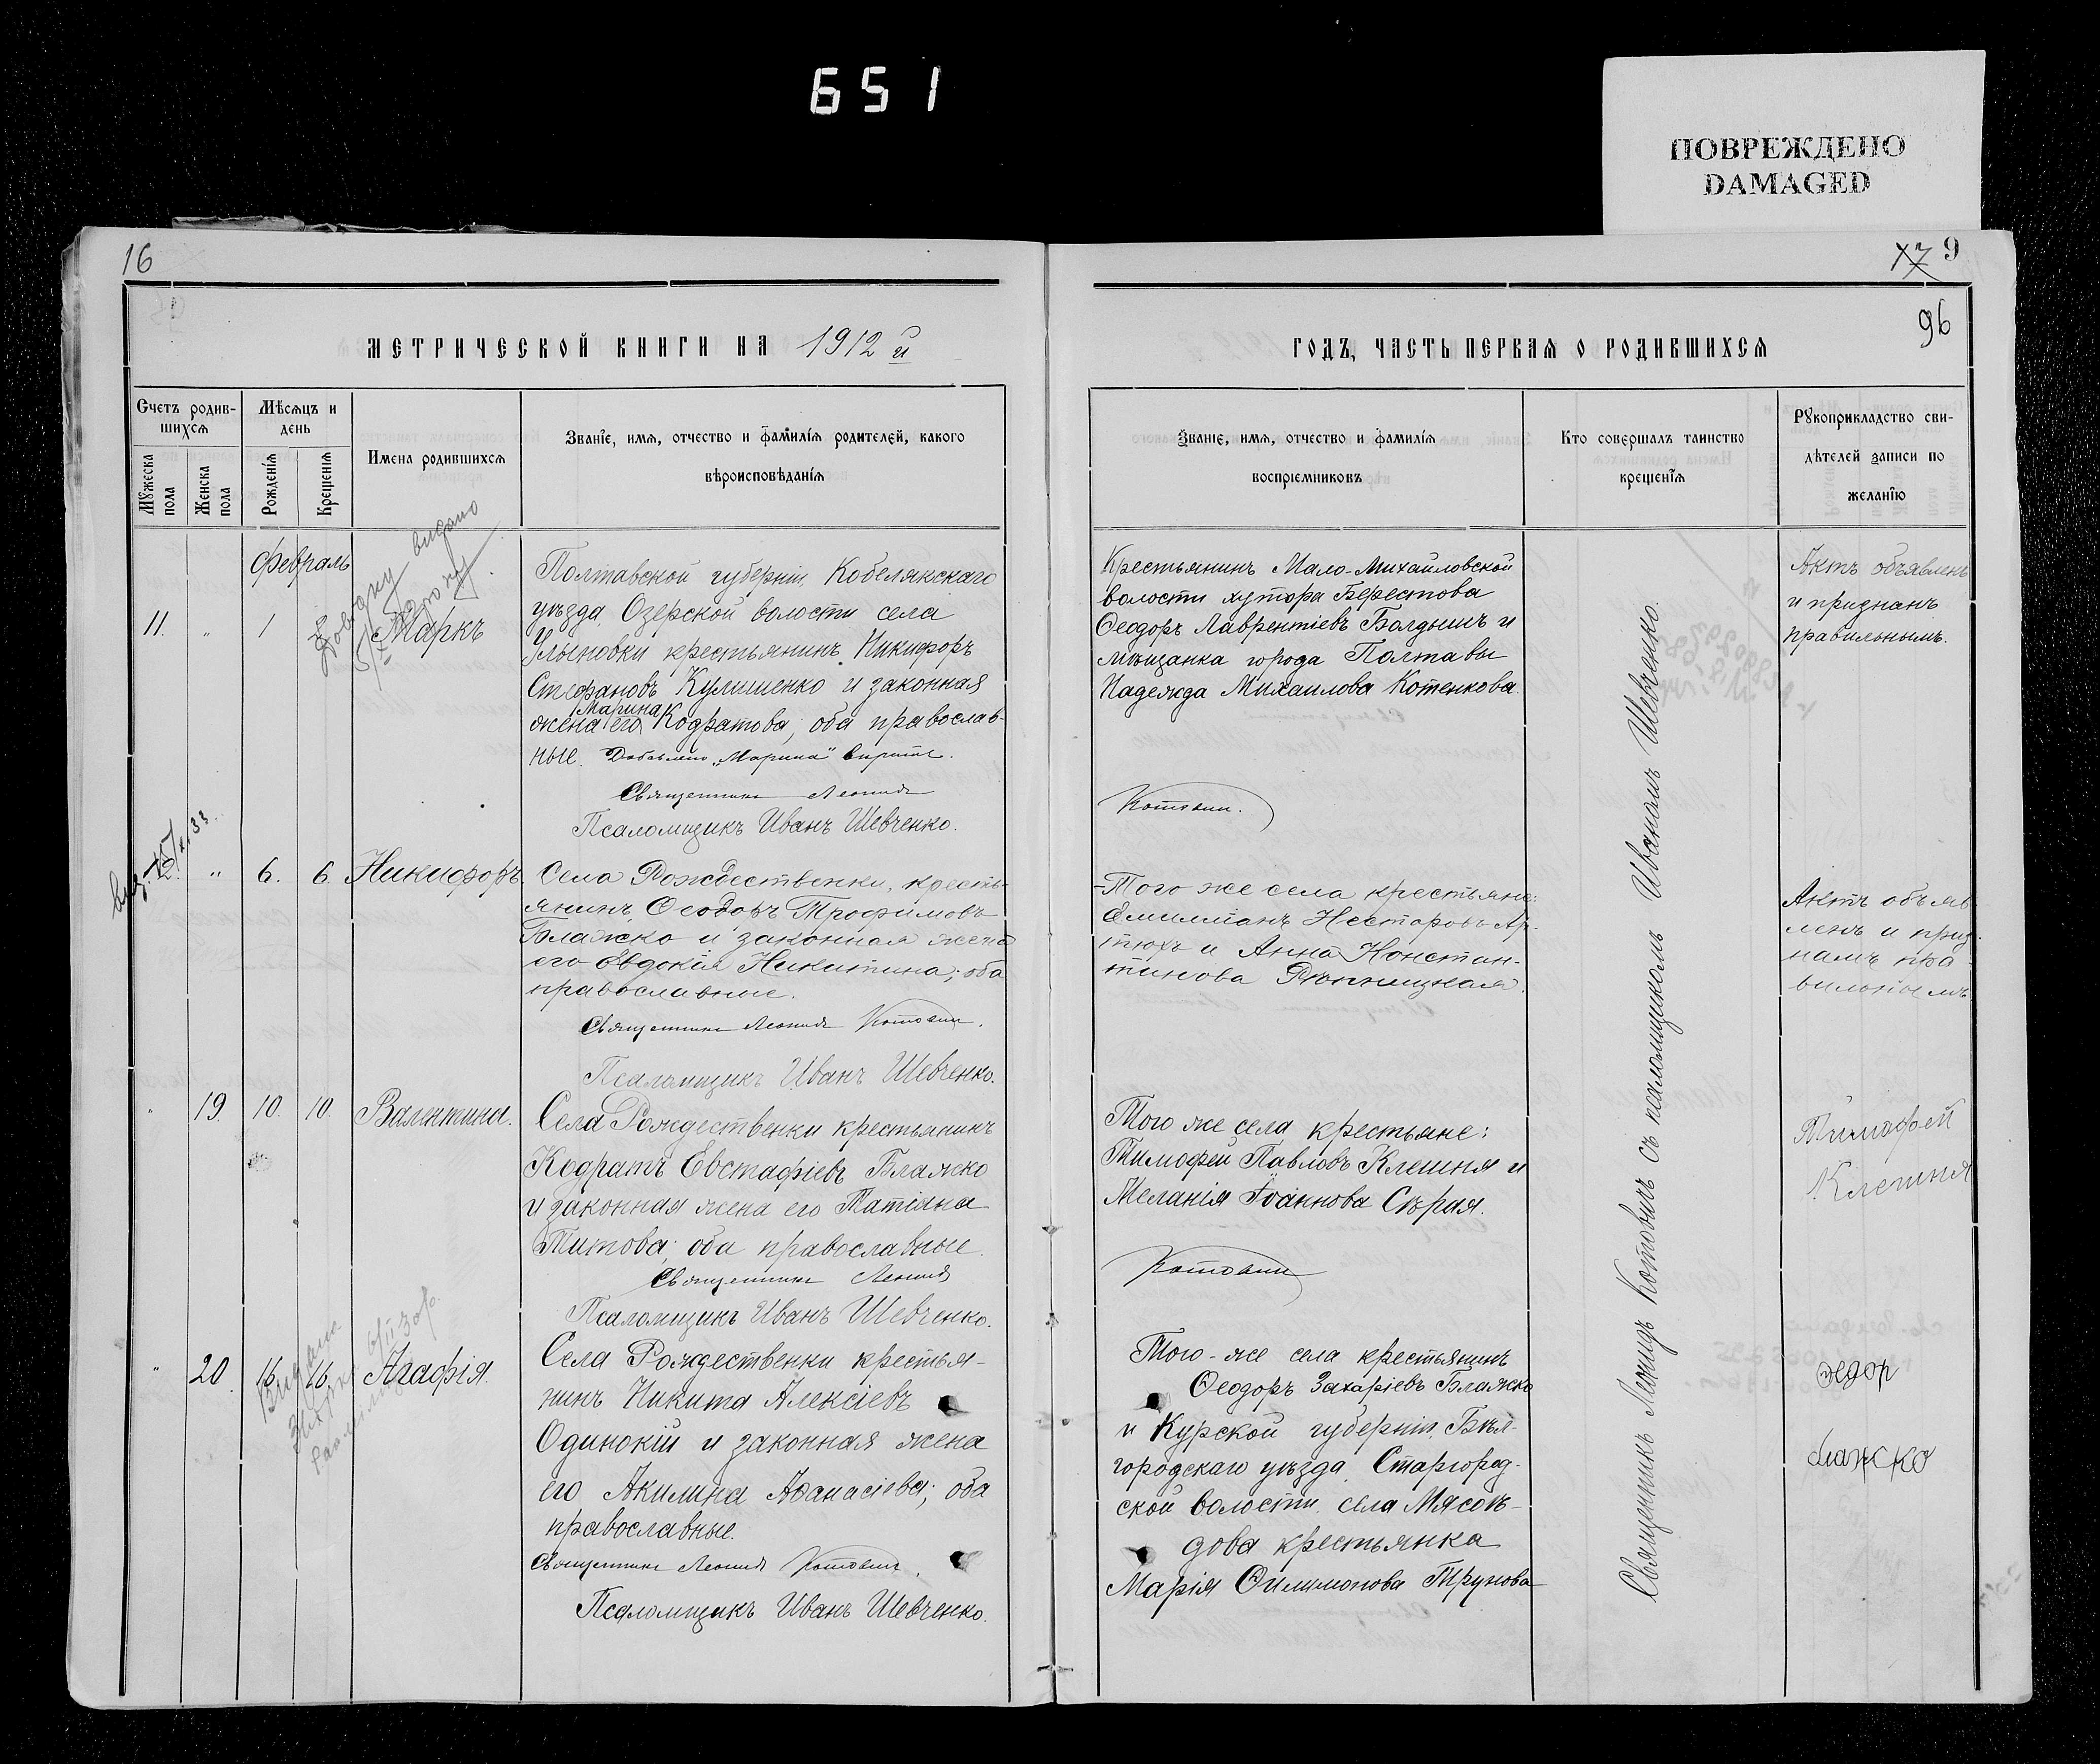 651
ПОВРЕЖДЕНО
DAMAGED
16
17 9
96
МЕТРИЧЕСКОЙ КНИГИ НА 1912 й
Счетъ родив-
шихся
Мѣсяцъ и
день
Имена родившихся
Званіе, имя, отчество и фамилія родителей, какого
вѣроисповѣданія
Мужеска
пола
Женска
пола
Рожденія
Крещенія
Февраль
11. " 1
Маркъ
Довідку видано
Полтавской губерніи, Кобелякскаго
уѣзда, Озерской волости села
Ульяновки крестьянинъ Никифоръ
Стефановъ Кулишенко и законная
Марина
жена его Кодратова, оба православ-
ные. Добавлено „Марина" вѣрите.
Священникъ Леонидъ
Псаломщикъ Иванъ Шевченко.
12. " 6. 6 Никифоръ
Села Рождественки, кресть-
янинъ Ѳеодоръ Трофимовъ
Блажко и законная жена
его Евдокія Никитина; оба
православные.
Священникъ Леонидъ Котович.
Псаломщикъ Иванъ Шевченко.
" 19. 10. 10. Валентина.
Села Рождественки крестьянинъ
Кодратъ Евстафіевъ Блажко
и законная жена его Татіяна
Титова; оба православные.
Священникъ Леонидъ
Псаломщикъ Иванъ Шевченко.
" 20. 16. 16. Агафія.
Видана
Села Рождественки крестья-
нинъ Никита Алексіевъ
Одинокій и законная жена
его Акилина Аѳанасіева; оба
православные.
Священникъ Леонидъ Котович.
Псаломщикъ Иванъ Шевченко.
ГОДЪ, ЧАСТЬ ПЕРВАЯ О РОДИВШИХСЯ
Званіе, имя, отчество и фамилія
воспріемниковъ
Кто совершалъ таинство
крещенія
Рукоприкладство сви-
дѣтелей записи по
желанію
Крестьянинъ Мало-Михайловской
волости хутора Берестова
Ѳеодоръ Лаврентіевъ Болдышъ и
мѣщанка города Полтавы
Надежда Михаилова Котенкова.
Котович.
Актъ объявленъ
и признанъ
правильнымъ.
Того же села крестьяне:
Емиліанъ Несторовъ Ар-
тюхъ и Анна Констан-
тинова
Актъ объяв-
ленъ и приз-
нанъ пра-
вильнымъ
Того же села крестьяне:
Тимофей Павловъ Клешня и
Меланія Іоаннова Сѣрая.
Котович
Тимофей
Клешня
Того-же села крестьянинъ
Ѳеодоръ Захаріевъ Блажко
и Курской губерніи, Бѣл-
городскаго уѣзда, Старгород-
ской волости, села Мясоѣ-
дова крестьянка
Марія Филимонова Трунова
Ѳедор
блажко
Священникъ Леонидъ Котовичъ съ псаломщикомъ Иваномъ Шевченко.